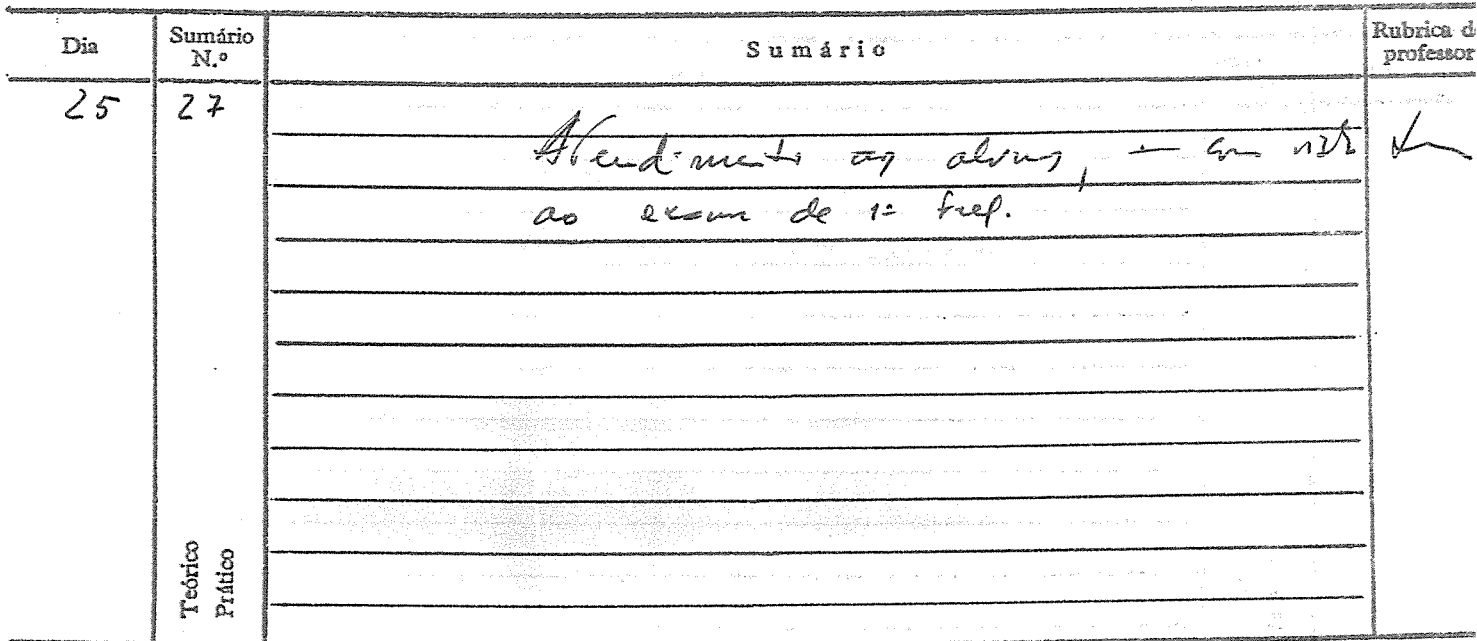 Dia
Sumário N.º
Sumário
Rubrica do professor
25
27
Atendimento aos alunos, — com vista
ao exame de 1ª freq.
Teórico
Prático